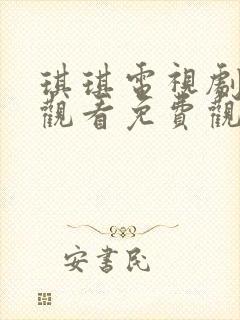 琪琪電視劇
觀看免費觀
安書民